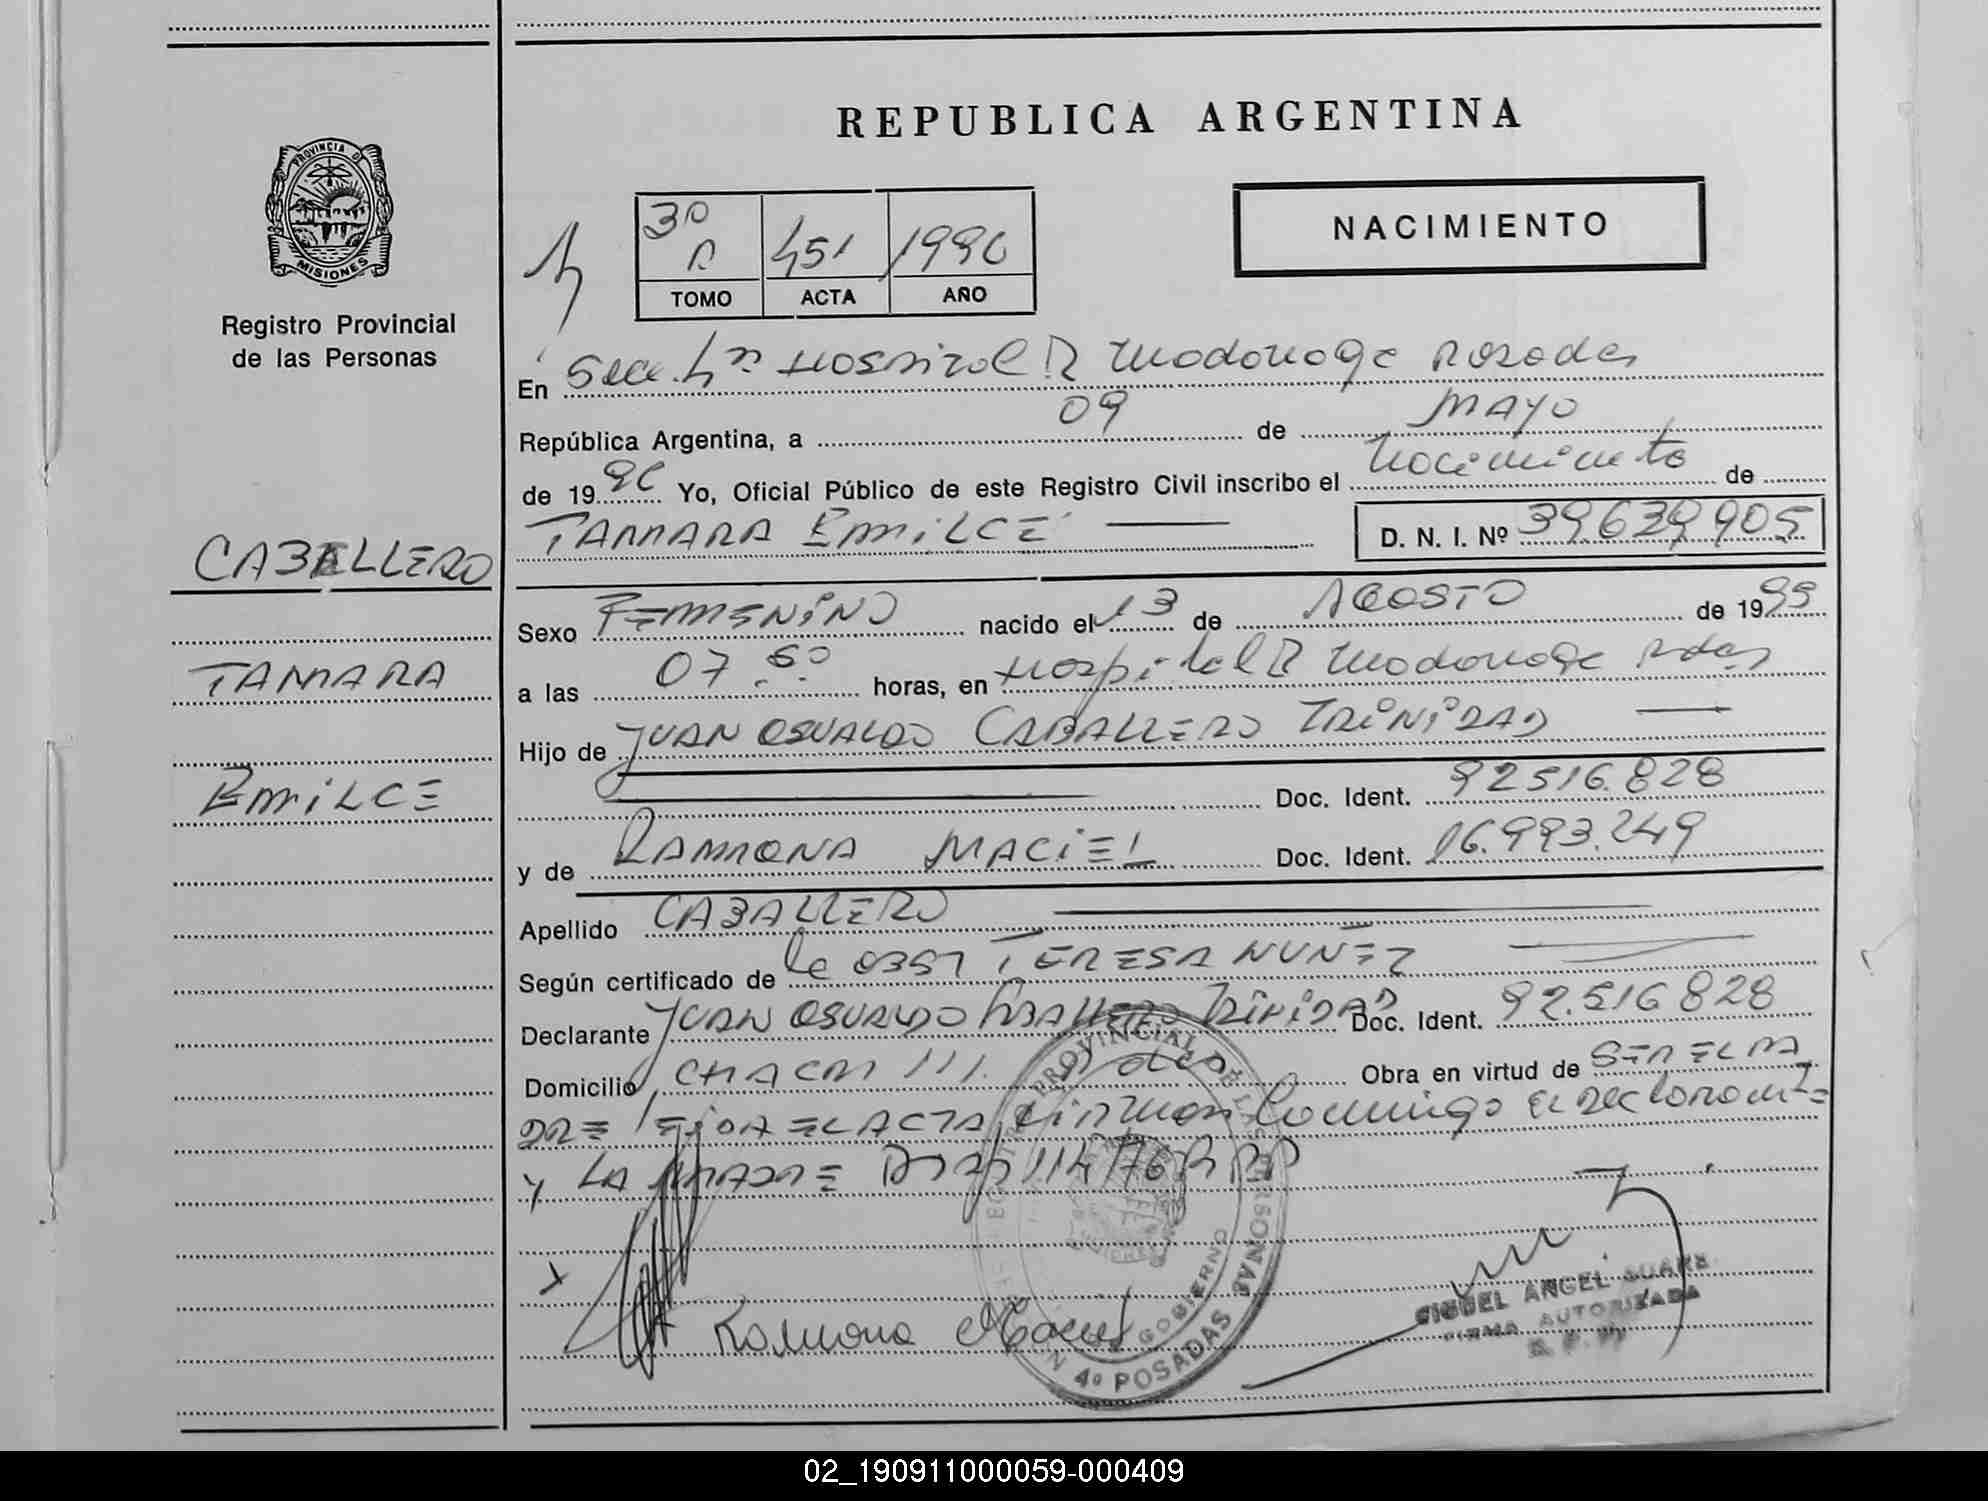 REPUBLICA ARGENTINA
PROVINCIA DE
MISIONES
Registro Provincial
de las Personas
3º
451
1996
TOMO
ACTA
AÑO
NACIMIENTO
En Secc. 4ta Hospital R Madariaga Posadas
República Argentina, a 09 de MAYO
de 1996 Yo, Oficial Público de este Registro Civil inscribo el Nacimiento de
TAMARA EMILCE D. N. I. Nº 39639905
CABALLERO
TAMARA
EMILCE
Sexo FEMENINO nacido el 13 de AGOSTO de 1995
a las 07 horas, en Hospital R Madariaga Pdas
Hijo de JUAN OSVALDO CABALLERO TRINIDAD
Doc. Ident. 92516.828
y de RAMONA MACIEL Doc. Ident. 16.993.249
Apellido CABALLERO
Según certificado de la OBST TERESA NUÑEZ
Declarante JUAN OSVALDO CABALLERO TRINIDAD Doc. Ident. 92.516828
Domicilio CHACRA 111. Pdas Obra en virtud de
EL ACTA, firman Conmigo el declarante
y LA MADRE
REGISTRO PROVINCIAL DE LAS PERSONAS
GOBIERNO
4º POSADAS
Ramona Maciel
MIGUEL ANGEL SUARE
FIRMA AUTORIZADA
02_190911000059-000409